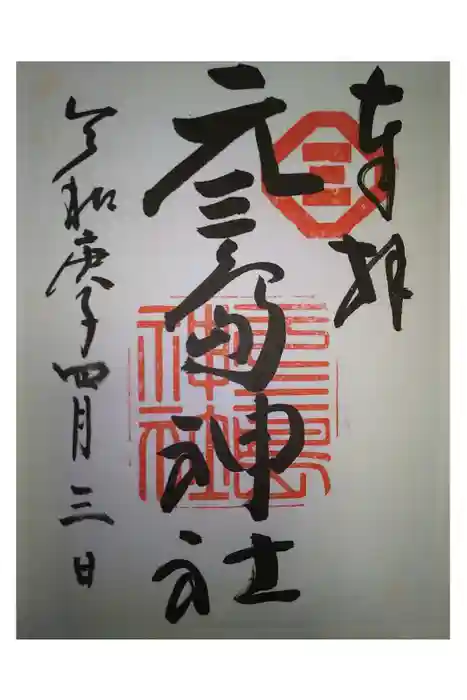 奉拝
三
元三島神社
元三島神社
令和庚子四月三日